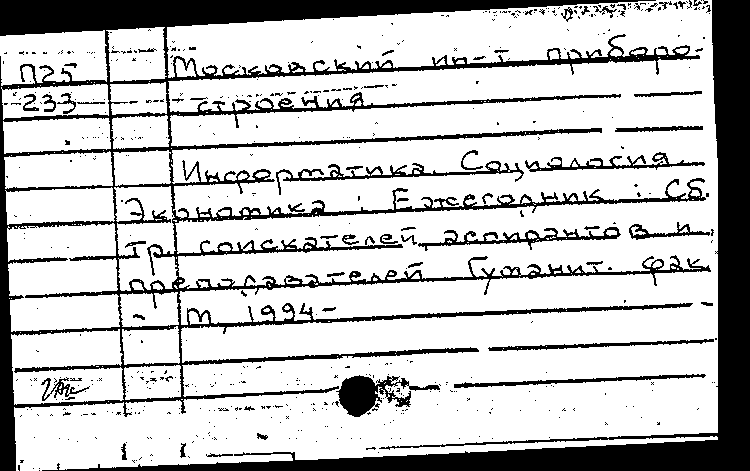 П25 Московский ин-т приборо-
233 строения.
Информатика. Социология.
Экономика : Ежегодник : Сб.
тр. соискателей, аспирантов и
преподавателей Гуманит. фак.
- М, 1994-